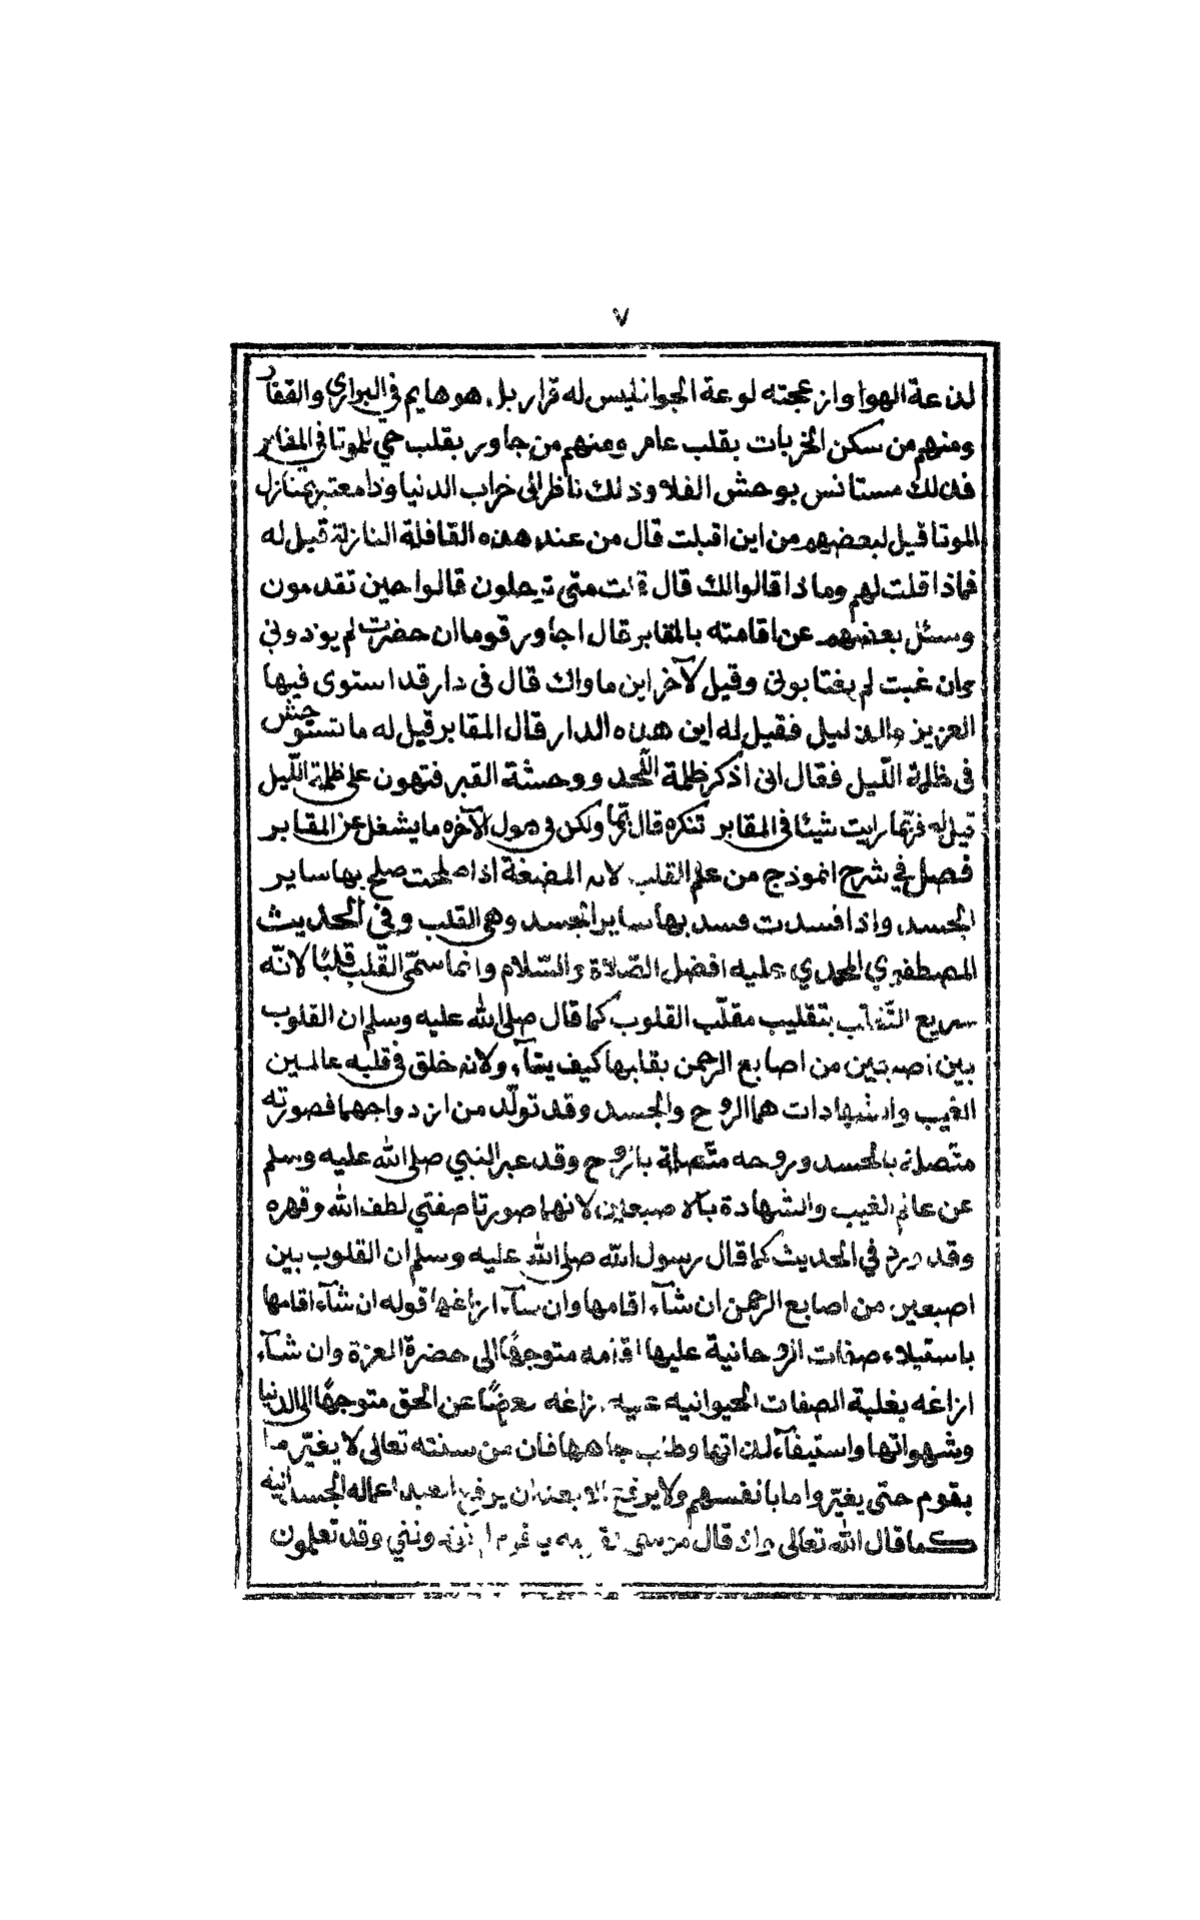 ٧
لذعة الهوا وازعجته لوعة الجوا فليس له قرار بل هو هايم في البراري والقفار
ومنهم من سكن الخربات بقلب عامر ومنهم من جاور بقلب حي للموتا في المقابر
فذلك مستانس بوحش الفلا وذلك ناظر الى خراب الدنيا وذا معتبر بمنازل
الموتا قيل لبعضهم من اين اقبلت قال من عند هذه القافلة النازلة قيل له
فماذا قلت لهم وماذا قالوا لك قال قلت متى ترحلون قالوا حين تقدمون
وسئل بعضهم عن اقامته بالمقابر قال اجاور قوما ان حضرت لم يوذوني
وان غبت لم يغتابوني وقيل لآخر اين ماواك قال في دار قد استوى فيها
العزيز والذليل فقيل له اين هذه الدار قال المقابر قيل له ما تستوحش
في ظلمة اللّيل فقال اني اذكر ظلمة اللّحد ووحشة القبر فتهون على ظلمة اللّيل
قيل له فربّما رايت شيئا في المقابر تنكره قال ربّما ولكن في هول الآخره ما يشغل عن المقابر
فصل في شرح انموذج من علم القلب لانه المضغة اذا صلحت صلح بها ساير
الجسد واذا فسدت فسد بها ساير الجسد وهى القلب وفي الحديث
المصطفوي المحمدي عليه افضل الصّلاة والسّلام وانما سمّى القلب قلبًا لانّه
سريع التّقلّب بتقليب مقلّب القلوب كما قال صلى الله عليه وسلم ان القلوب
بين اصبعين من اصابع الرحمن يقلبها كيف يشآء ولانه خلق في قلبه عالمين
الغيب والشهادات هما الروح والجسد وقد تولّد من ازدواجهما فصورته
متصلة بالجسد وروحه متّصلة بالروح وقد عبر النبي صلى الله عليه وسلم
عن عالم الغيب والشهادة بالاصبعين لانهما صورتا صفتي لطف الله وقهره
وقد ورد في الحديث كما قال رسول الله صلى الله عليه وسلم ان القلوب بين
اصبعين من اصابع الرحمن ان شآء اقامها وان شآء ازاغها قوله ان شآء اقامها
باستيلاء صفات الروحانية عليها اقامه متوجهًا الى حضرة العزة وان شآء
ازاغه بغلبة الصفات الحيوانيه عليه ازاغه معرضًا عن الحق متوجهًا الى الدنيا
وشهواتها واستيفآء لذاتها وطلب جاهها فان من سنته تعالى لا يغيّر ما
بقوم حتى يغيّروا ما بانفسهم ولا يرفع الا بعد ان يرفع العبد اعماله الجسدانيه
كما قال الله تعالى واذ قال موسى لقومه يا قوم لم تؤذونني وقد تعلمون